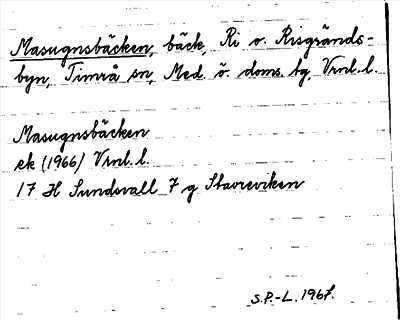 Masugnsbäcken, bäck, Ri o. Risgrånds-
byn, Timrå sn, Med. ö. doms. tg, Vrnl. l.
Masugnsbäcken
ek (1966) Vrnl. l.
17 H Sundsvall 7 g Stavreviken
S.P.-L. 1967.